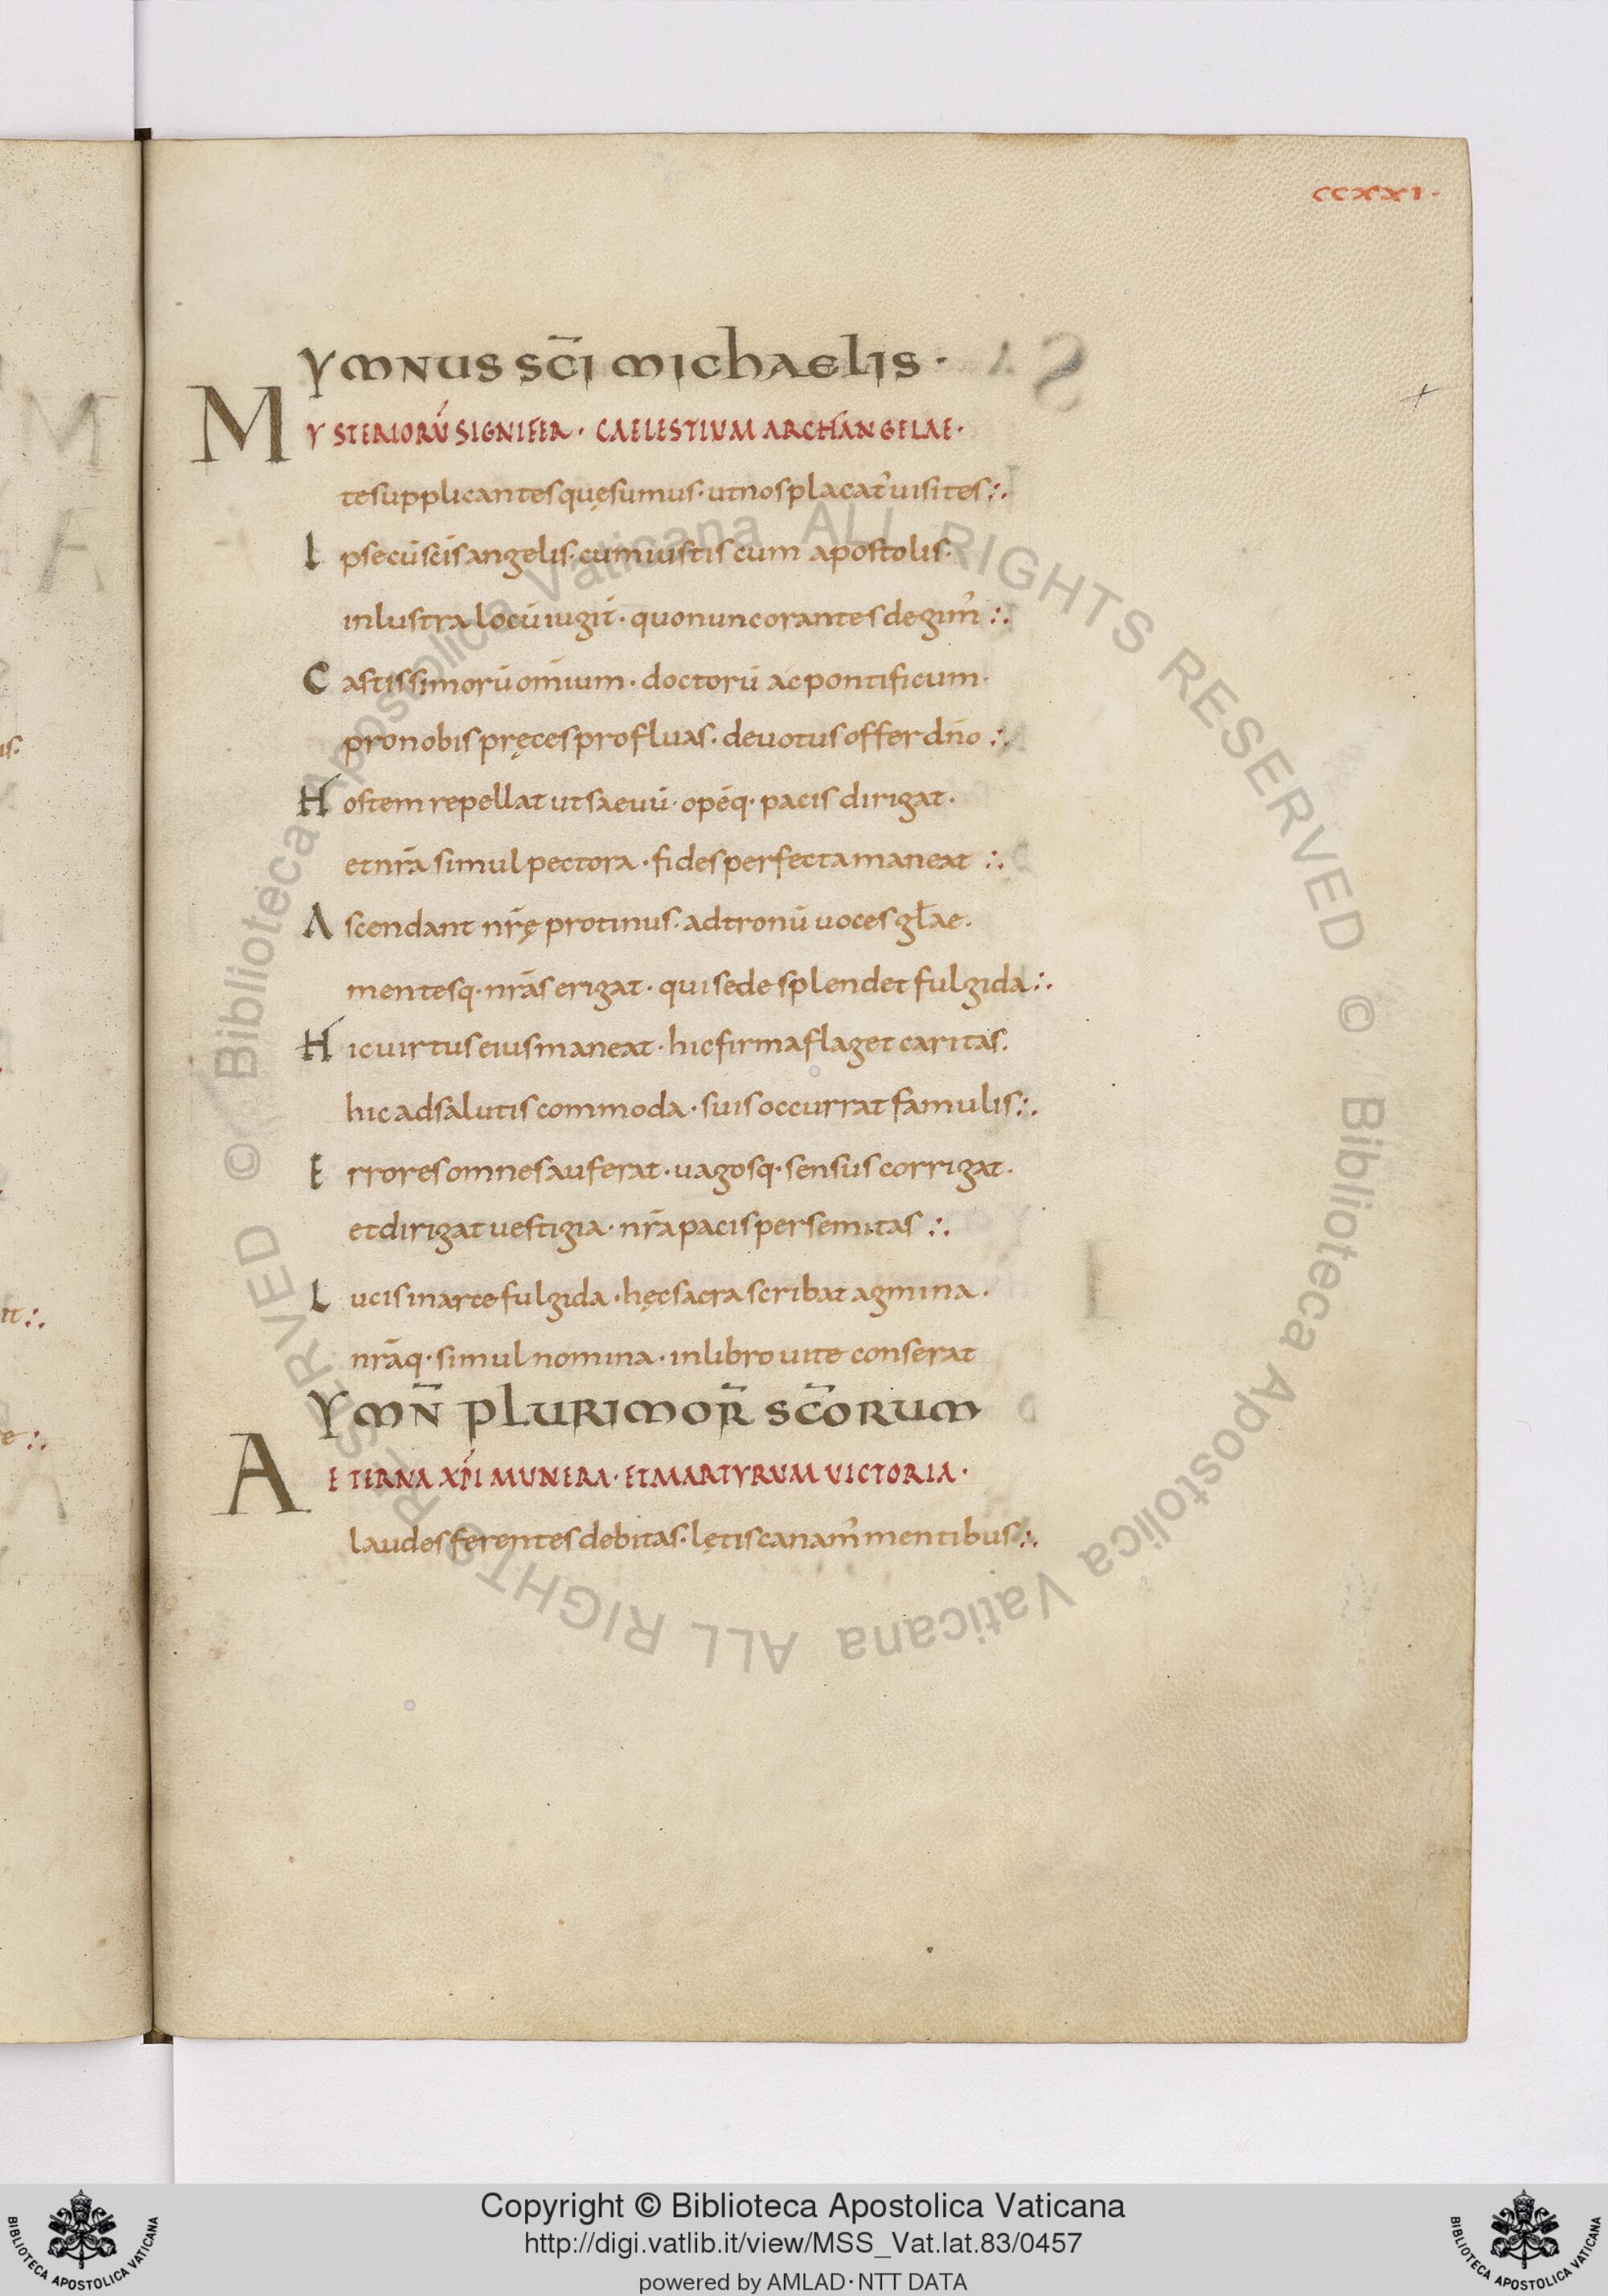 CCXXI·
YMNUS SC̄I MICHAELIS·
MYSTERIORŪ SIGNIFER· CAELESTIUM ARCHANGELAE·
te supplicantes quęsumus· ut nos placat᾽ uisites:·
Ipse cū sc̄is angelis· cum iustis cum apostolis·
inlustra locū iugit̄· quo nunc orantes degim᾽:·
Castissimorū om̄ium· doctorū ac pontificum·
pro nobis pręces profluas· deuotus offer dn̄o:·
Hostem repellat ut saeuū· opēq· pacis dirigat·
et nr̄a simul pectora· fides perfecta maneat:·
Ascendant nr̄ę protinus· ad tronū uoces gl̄ae·
mentesq· nr̄as erigat· qui sede splendet fulgida:·
Hic uirtus eius maneat· hic firma flaget caritas·
hic ad salutis commoda· suis occurrat famulis:·
Errores omnes auferat· uagosq· sensus corrigat·
et dirigat uestigia· nr̄a pacis per semitas:·
Lucis in arce fulgida· hęc sacra scribat agmina·
nr̄aq· simul nomina· in libro uite conserat
YMN̄ PLURIMOR̄ SC̄ORUM
AETERNA XP̄I MUNERA· ET MARTYRUM UICTORIA·
laudes ferentes debitas· lętis canam᾽ mentibus:·
© Biblioteca Apostolica Vaticana ALL RIGHTS RESERVED © Biblioteca Apostolica Vaticana ALL RIGHTS RESERVED
Copyright © Biblioteca Apostolica Vaticana
http://digi.vatlib.it/view/MSS_Vat.lat.83/0457
powered by AMLAD·NTT DATA
BIBLIOTECA APOSTOLICA VATICANA
BIBLIOTECA APOSTOLICA VATICANA